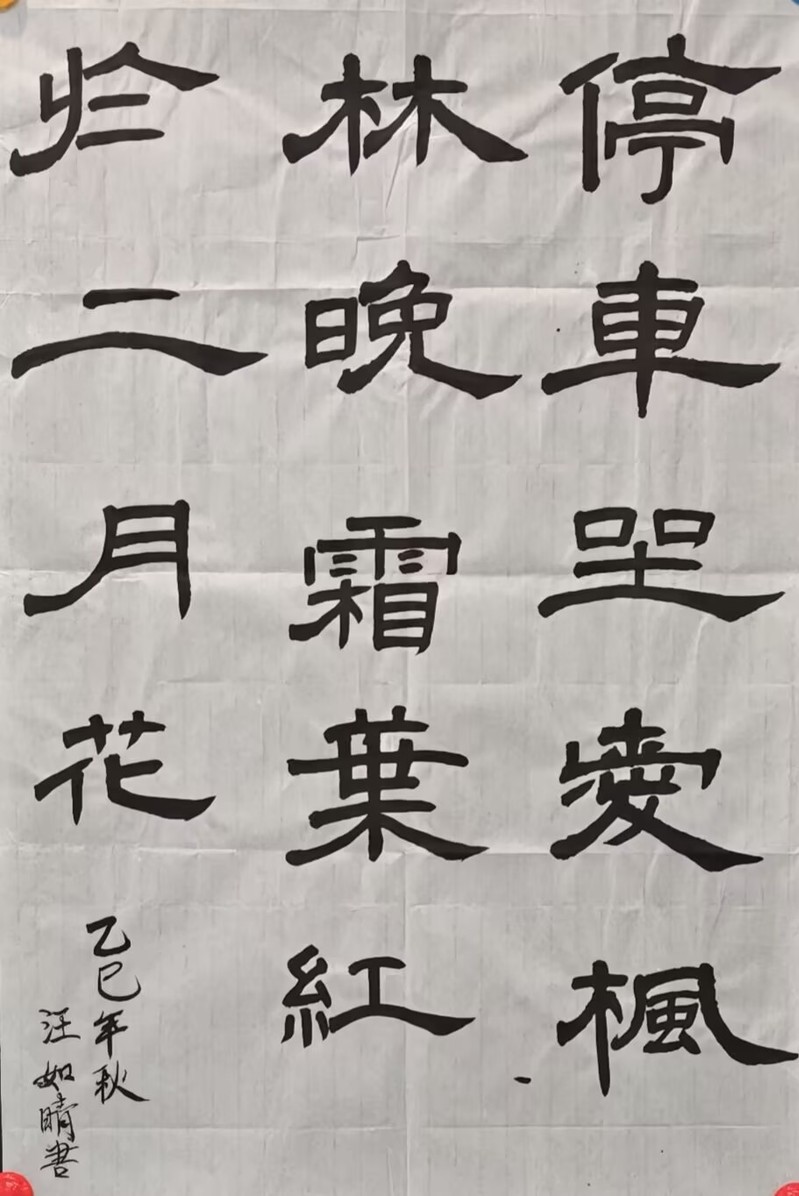 停車坐愛楓
林晚霜葉紅
於二月花
乙巳年秋
汪如晴書